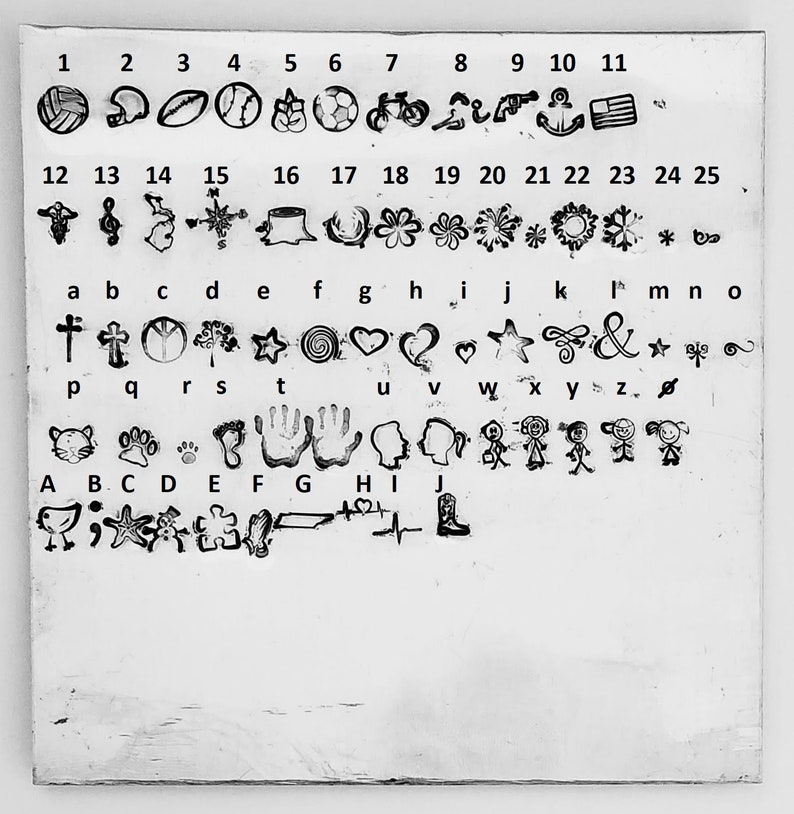 1 2 3 4 5 6 7 8 9 10 11
12 13 14 15 16 17 18 19 20 21 22 23 24 25
N
S
a b c d e f g h i j k l m n o
&
p q r s t u v w x y z ø
A B C D E F G H I J
;